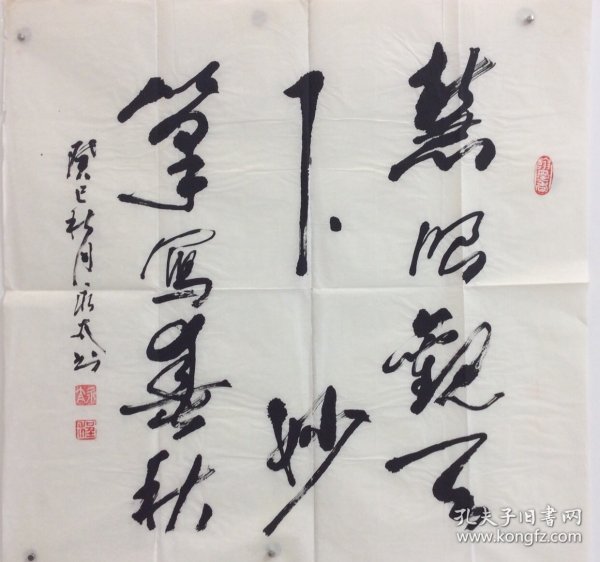 慧眼觀天
下妙
筆寫春秋
癸巳秋月永太书
孔夫子旧书网
www.kongfz.com